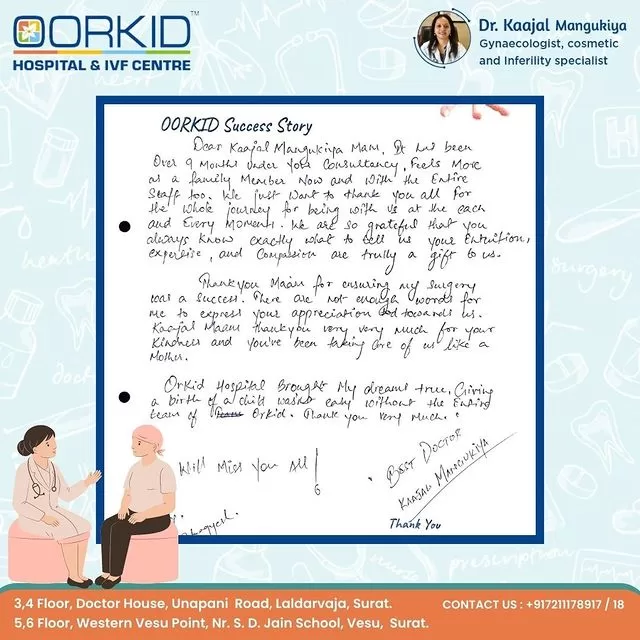 OORKID™
HOSPITAL & IVF CENTRE
Dr. Kaajal Mangukiya
Gynaecologist, cosmetic
and Inferility specialist
OORKID Success Story
Dear Kaajal Mangukiya Mam, It has been
Over 9 Months Under Your Consultancy, Feels More
as a family Member Now and With the Entire
Staff too. We just Want to thank you all For
the Whole journey for being with us at the each
and Every Moment. We are so grateful that you
always Know exactly what to tell us your Entuition,
expertise, and Compassion are trully a gift to us.
Thankyou Maam for ensuring my surgery
was a success. There are not enough words for
me to express your appreciation towards us.
Kaajal Maam thankyou very very much for your
Kindness and you've been taking Care of us like a
Mother.
Orkid Hospital Brought My dreams true, Giving
a birth of a child wasnt easy without the Entire
team of Orkid. Thank you very Much.
Will Miss You All
BEST DOCTOR
KAAJAL MANGUKIYA
Thank You
3,4 Floor, Doctor House, Unapani Road, Laldarvaja, Surat.
5,6 Floor, Western Vesu Point, Nr. S. D. Jain School, Vesu, Surat.
CONTACT US : +917211178917 / 18